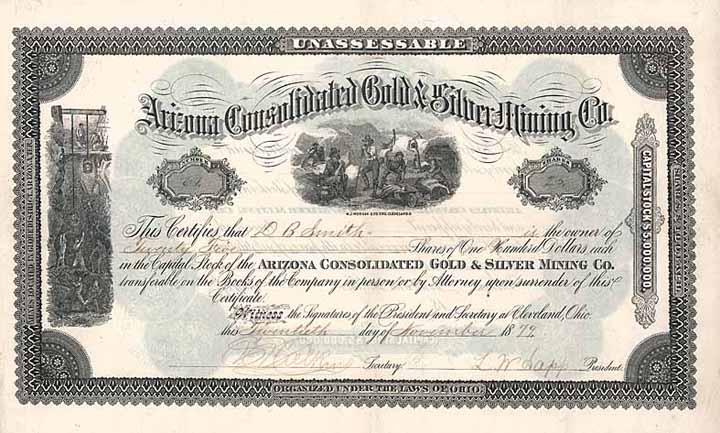 UNASSESSABLE
Arizona Consolidated Gold & Silver Mining Co.
NUMBER
64
SHARES
25
CAPITAL STOCK $5,000,000.00
This Certifies that D B Smith is the owner of
Twenty Five Shares of One Hundred Dollars each
in the Capital Stock of the ARIZONA CONSOLIDATED GOLD & SILVER MINING CO.
transferable on the Books of the Company in person or by Attorney upon surrender of this
Certificate.
Witness the Signatures of the President and Secretary at Cleveland, Ohio
this Twentieth day of November 1879.
Secretary. L W Sapp President.
ORGANIZED UNDER THE LAWS OF OHIO.